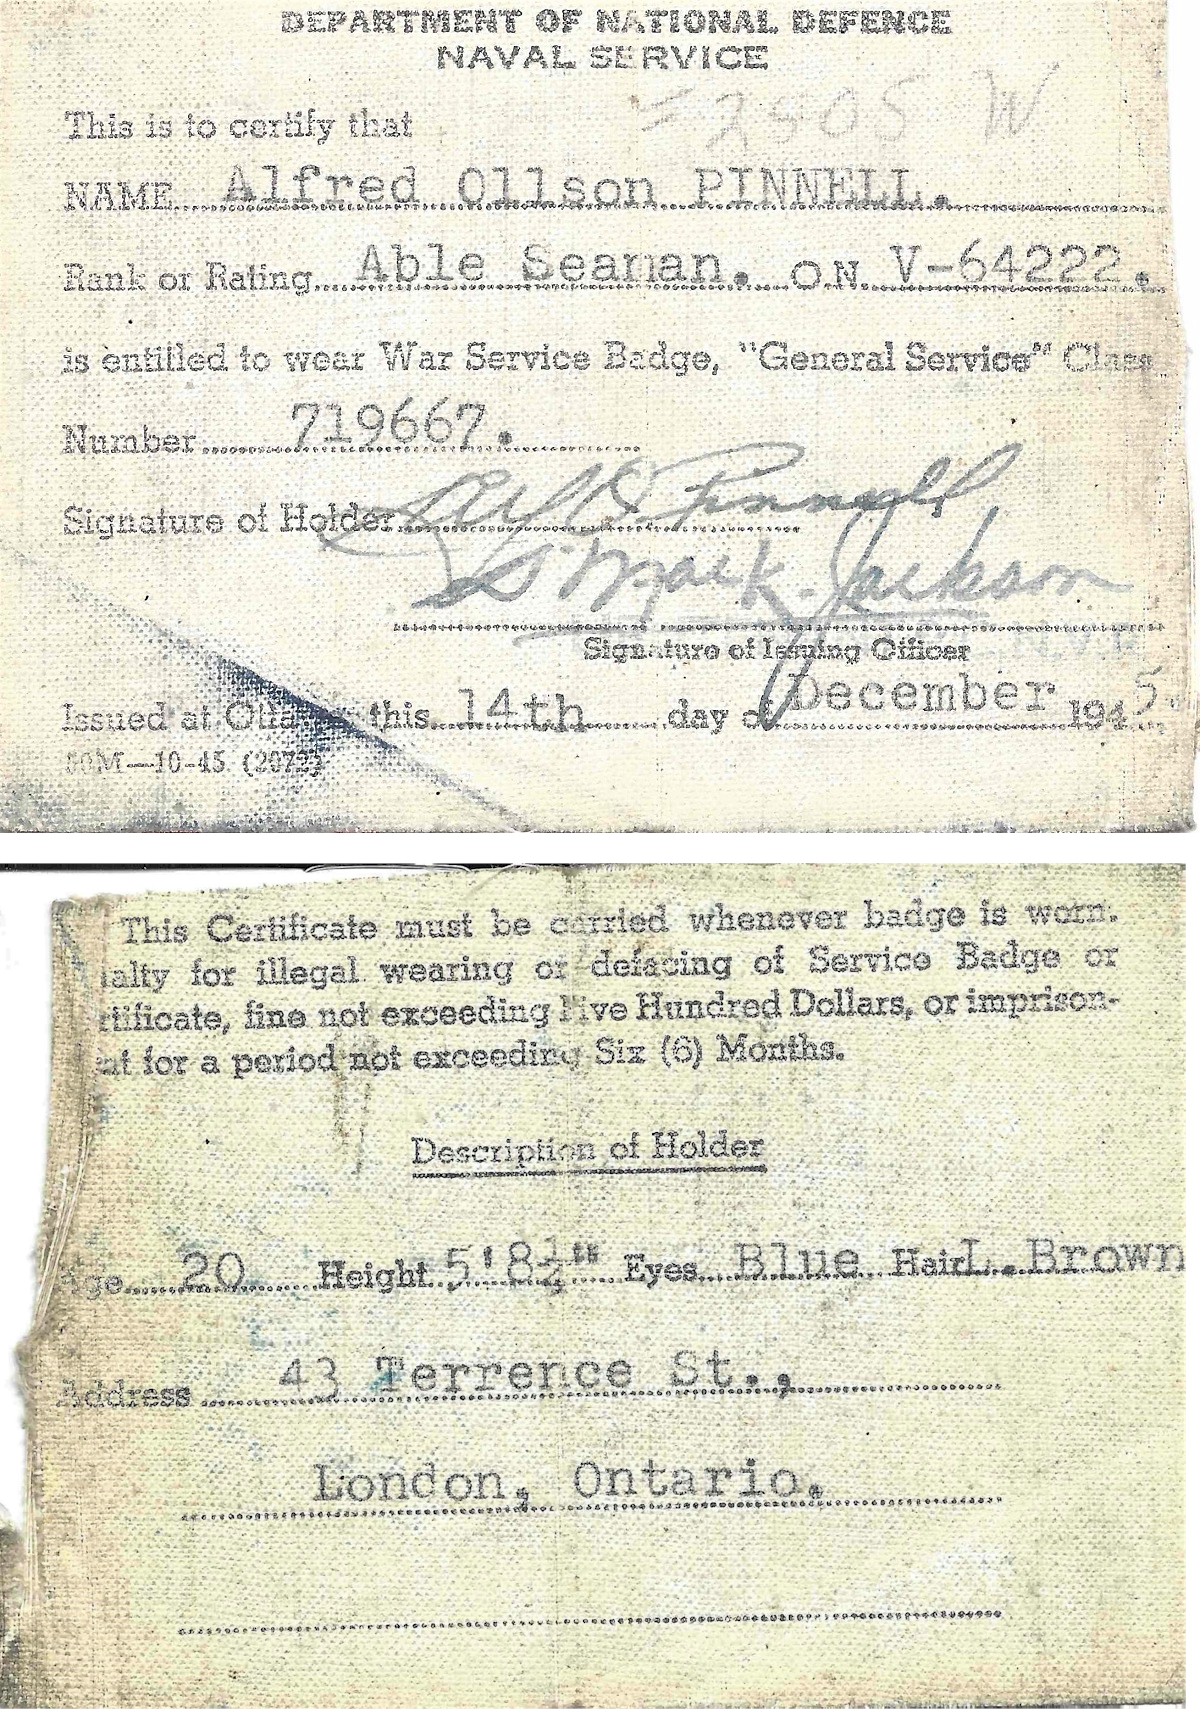 DEPARTMENT OF NATIONAL DEFENCE
NAVAL SERVICE
This is to certify that
NAME Alfred Ollson PINNELL.
Rank or Rating Able Seaman. O.N. V-64222.
is entitled to wear War Service Badge, "General Service" Class
Number 719667.
Signature of Holder Alf O Pinnell
Mack. Jackson
Signature of Issuing Officer
Issued at Ottawa this 14th day of December 1945.
50M—10-45 (2072)
This Certificate must be carried whenever badge is worn.
alty for illegal wearing or defacing of Service Badge or
rtificate, fine not exceeding Five Hundred Dollars, or imprison-
nt for a period not exceeding Six (6) Months.
Description of Holder
Age 20 Height 5'8½" Eyes Blue Hair L. Brown
Address 43 Terrence St.,
London, Ontario.